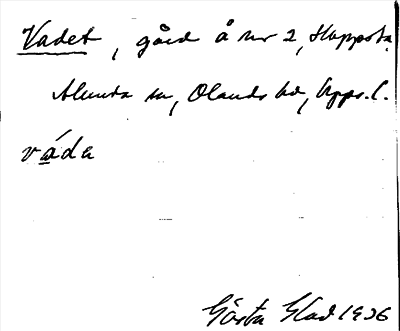 Vadet, gård å nr 2, Hopposta.
Alunda sn, Olands hd, Upps. l.
váda
Gösta Hlad 1926